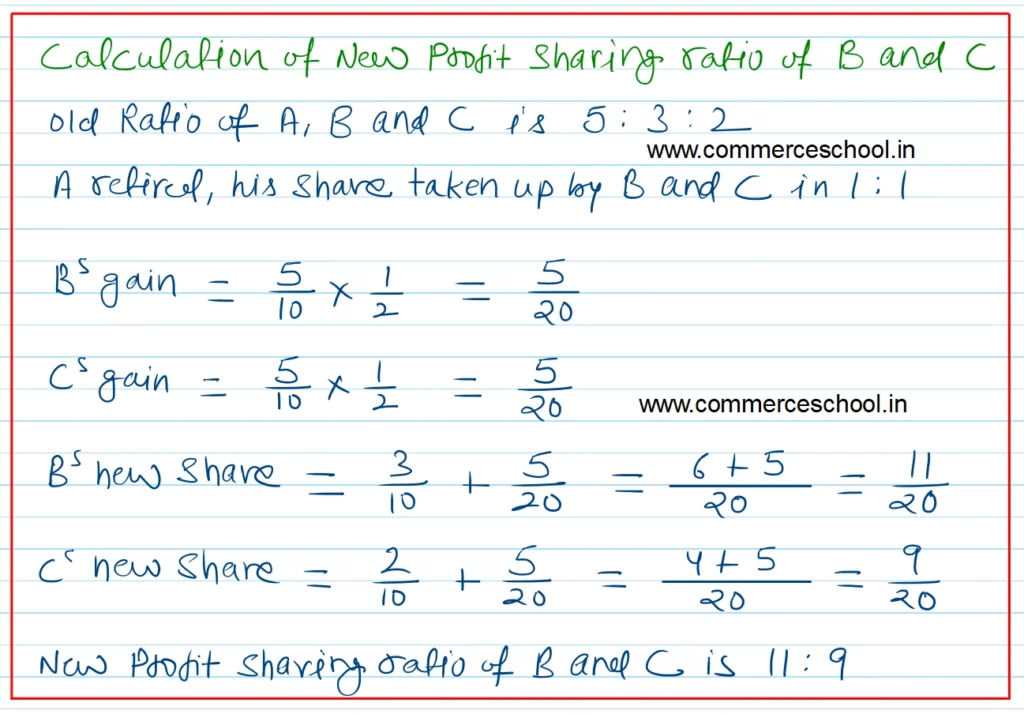 Calculation of New Profit Sharing ratio of B and C
old Ratio of A, B and C is 5 : 3 : 2
www.commerceschool.in
A retired, his share taken up by B and C in 1 : 1
Bˢ gain = 5/10 × 1/2 = 5/20
Cˢ gain = 5/10 × 1/2 = 5/20
www.commerceschool.in
Bˢ new share = 3/10 + 5/20 = 6 + 5/20 = 11/20
Cˢ new share = 2/10 + 5/20 = 4 + 5/20 = 9/20
New Profit sharing ratio of B and C is 11 : 9